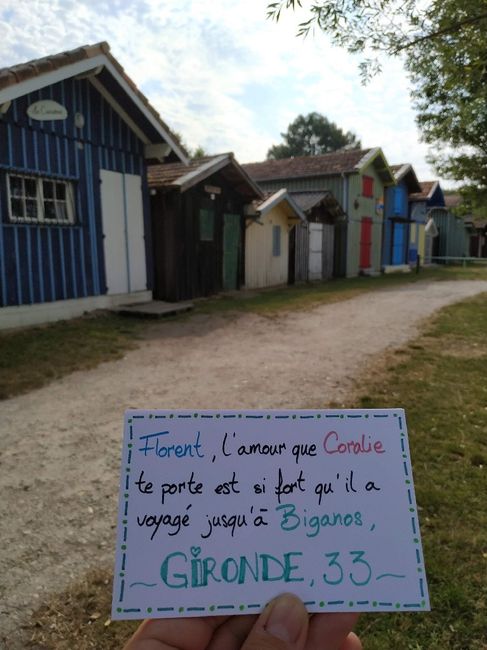 Florent, l'amour que Coralie
te porte est si fort qu'il a
voyagé jusqu'à Biganos,
~ GIRONDE, 33 ~